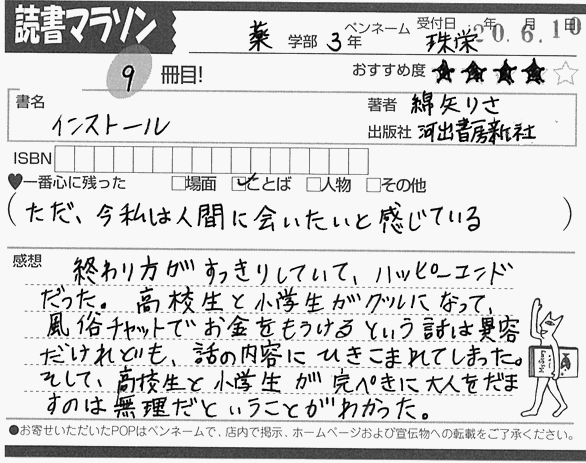 読書マラソン
薬 学部 3年 ペンネーム 珠栄 受付日 年 月 日 20.6.10
9 冊目! おすすめ度 ★★★★☆
書名 インストール
著者 綿矢りさ
出版社 河出書房新社
ISBN
♥一番心に残った □場面 ☑ことば □人物 □その他
(ただ、今私は人間に会いたいと感じている)
感想 終わり方がすっきりしていて、ハッピーエンド
だった。高校生と小学生がグルになって、
風俗チャットでお金をもうけるという話は異容
だけれども、話の内容にひきこまれてしまった。
そして、高校生と小学生が完ぺきに大人をだま
すのは無理だということがわかった。
●お寄せいただいたPOPはペンネームで、店内で掲示、ホームページおよび宣伝物への転載をご了承ください。